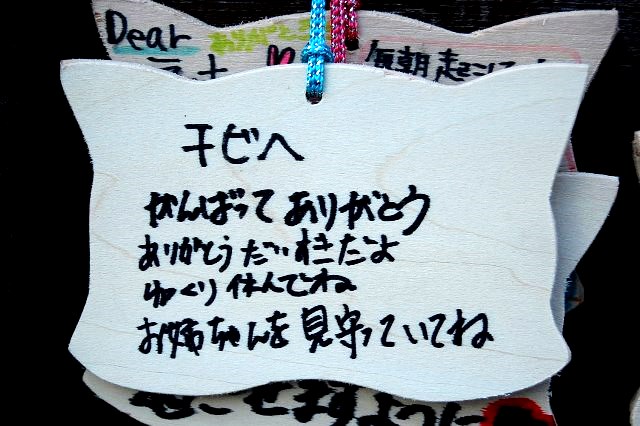 Dear
ありがとう
毎朝起こして
チビへ
がんばって ありがとう
ありがとう だいすきだよ
ゆっくり休んでね
お姉ちゃんを見守っていてね
ますように